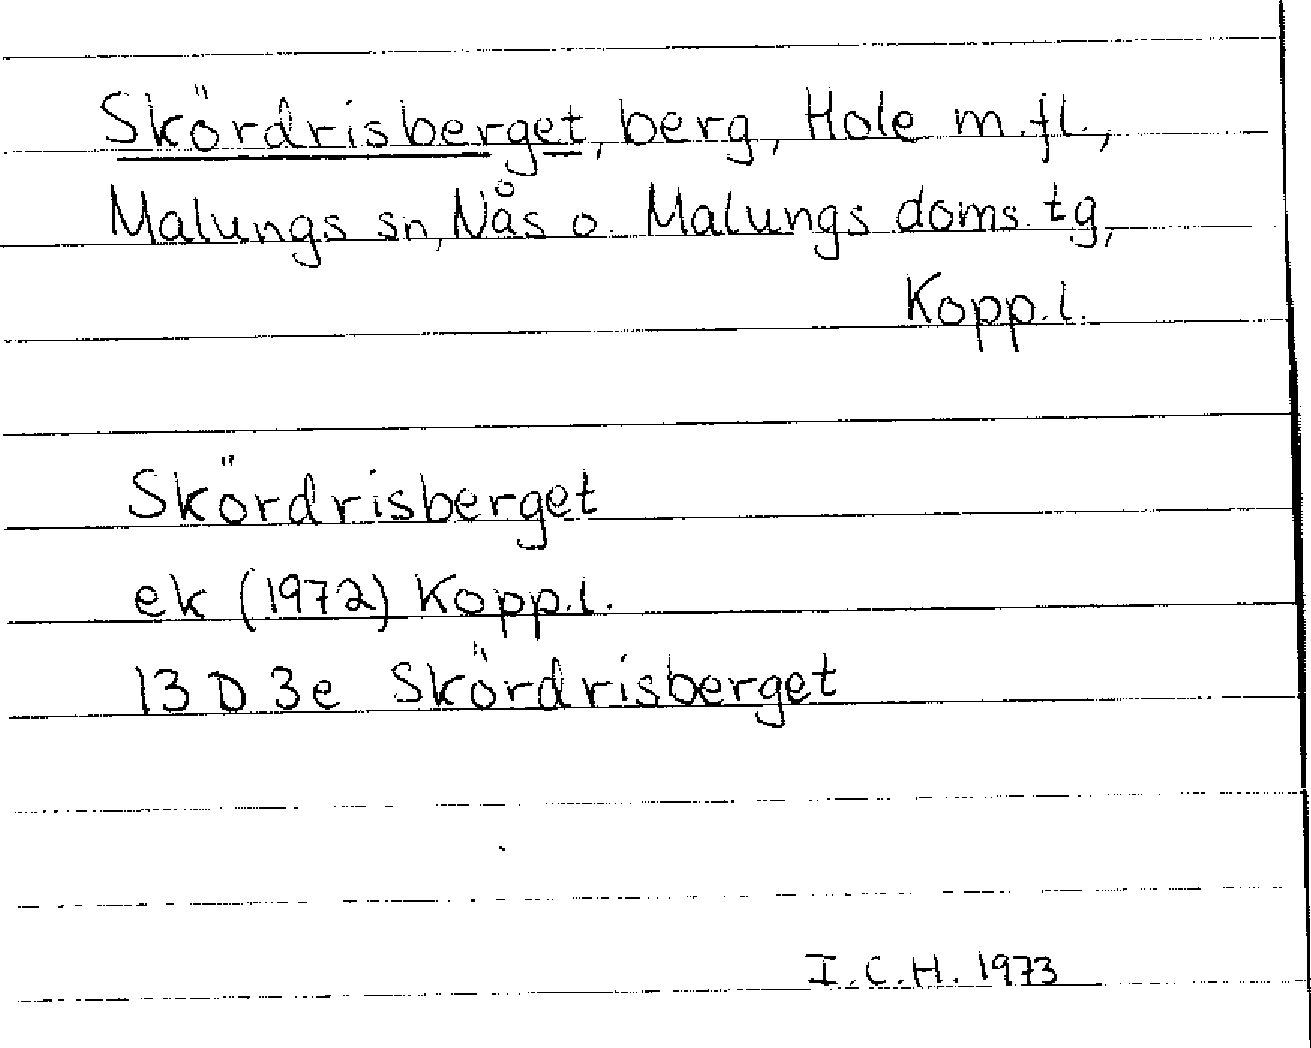 Skördrisberget, berg, Hole m.fl.,
Malungs sn, Nås o. Malungs doms. tg,
Kopp.l.
Skördrisberget
ek (1972) Kopp.l.
13 D 3e Skördrisberget
I.C.H. 1973